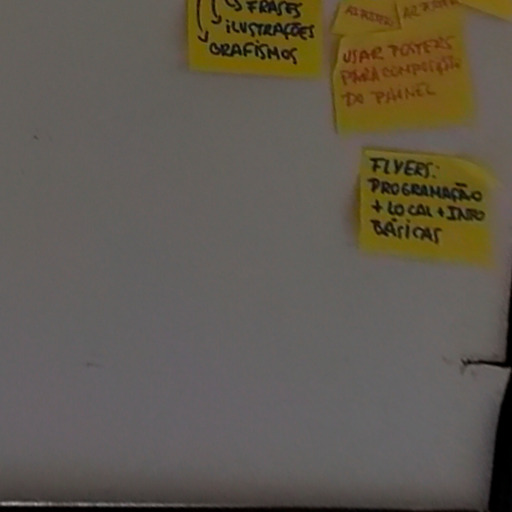 FRASES
ILUSTRAÇÕES
GRAFISMOS
USAR POSTERS
PARA COMPOSIÇÃO
DO PAINEL
FLYERS:
PROGRAMAÇÃO
+ LOCAL + INFO
BÁSICAS